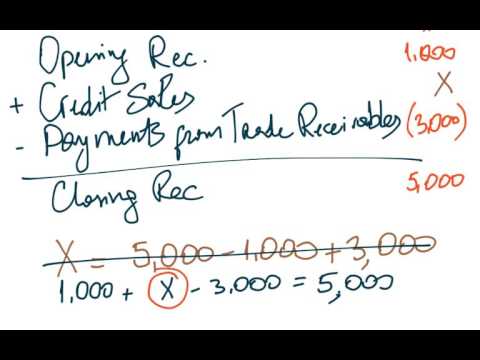 Opening Rec. 1,000
+ Credit Sales X
- Payments from Trade Receivables (3,000)
Closing Rec 5,000
X = 5,000 - 1,000 + 3,000
1,000 + X - 3,000 = 5,000